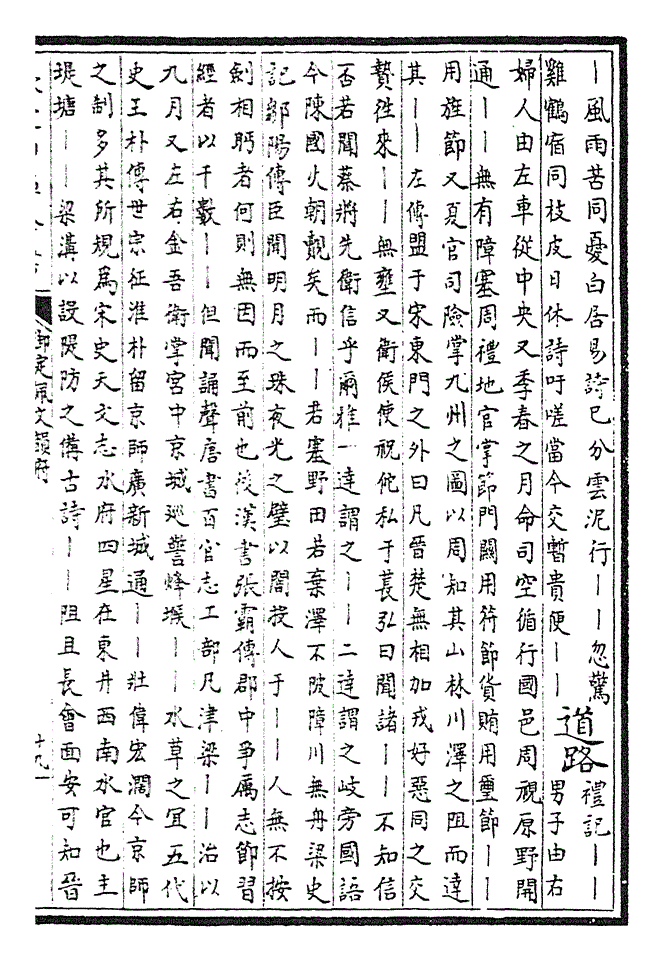 ｜風雨苦同憂白居易詩已分雲泥行｜｜忽驚
雞鶴宿同枝皮日休詩吁嗟當今交暫貴便｜｜
道路
禮記｜｜
男子由右
婦人由左車從中央又季春之月命司空循行國邑周視原野開
通｜｜無有障塞周禮地官掌節門關用符節貨賄用璽節｜｜
用旌節又夏官司險掌九州之圖以周知其山林川澤之阻而達
其｜｜左傳盟于宋東門之外曰凡晉楚無相加戎好惡同之交
贄徃來｜｜無壅又衛侯使祝佗私于萇弘曰聞諸｜｜不知信
否若聞蔡將先衛信乎爾雅一達謂之｜｜二達謂之歧旁國語
今陳國火朝覿矣而｜｜若塞野田若棄澤不陂障川無舟梁史
記鄒陽傳臣聞明月之珠夜光之璧以闇投人于｜｜人無不按
劍相眄者何則無因而至前也後漢書張霸傳郡中爭厲志節習
經者以千數｜｜但聞誦聲唐書百官志工部凡津梁｜｜治以
九月又左右金吾衛掌宮中京城巡警烽堠｜｜水草之宜五代
史王朴傳世宗征淮朴留京師廣新城通｜｜壯偉宏濶今京師
之制多其所規為宋史天文志水府四星在東井西南水官也主
堤塘｜｜梁溝以設隄防之備古詩｜｜阻且長會面安可知晉
御定佩文韻府
十九